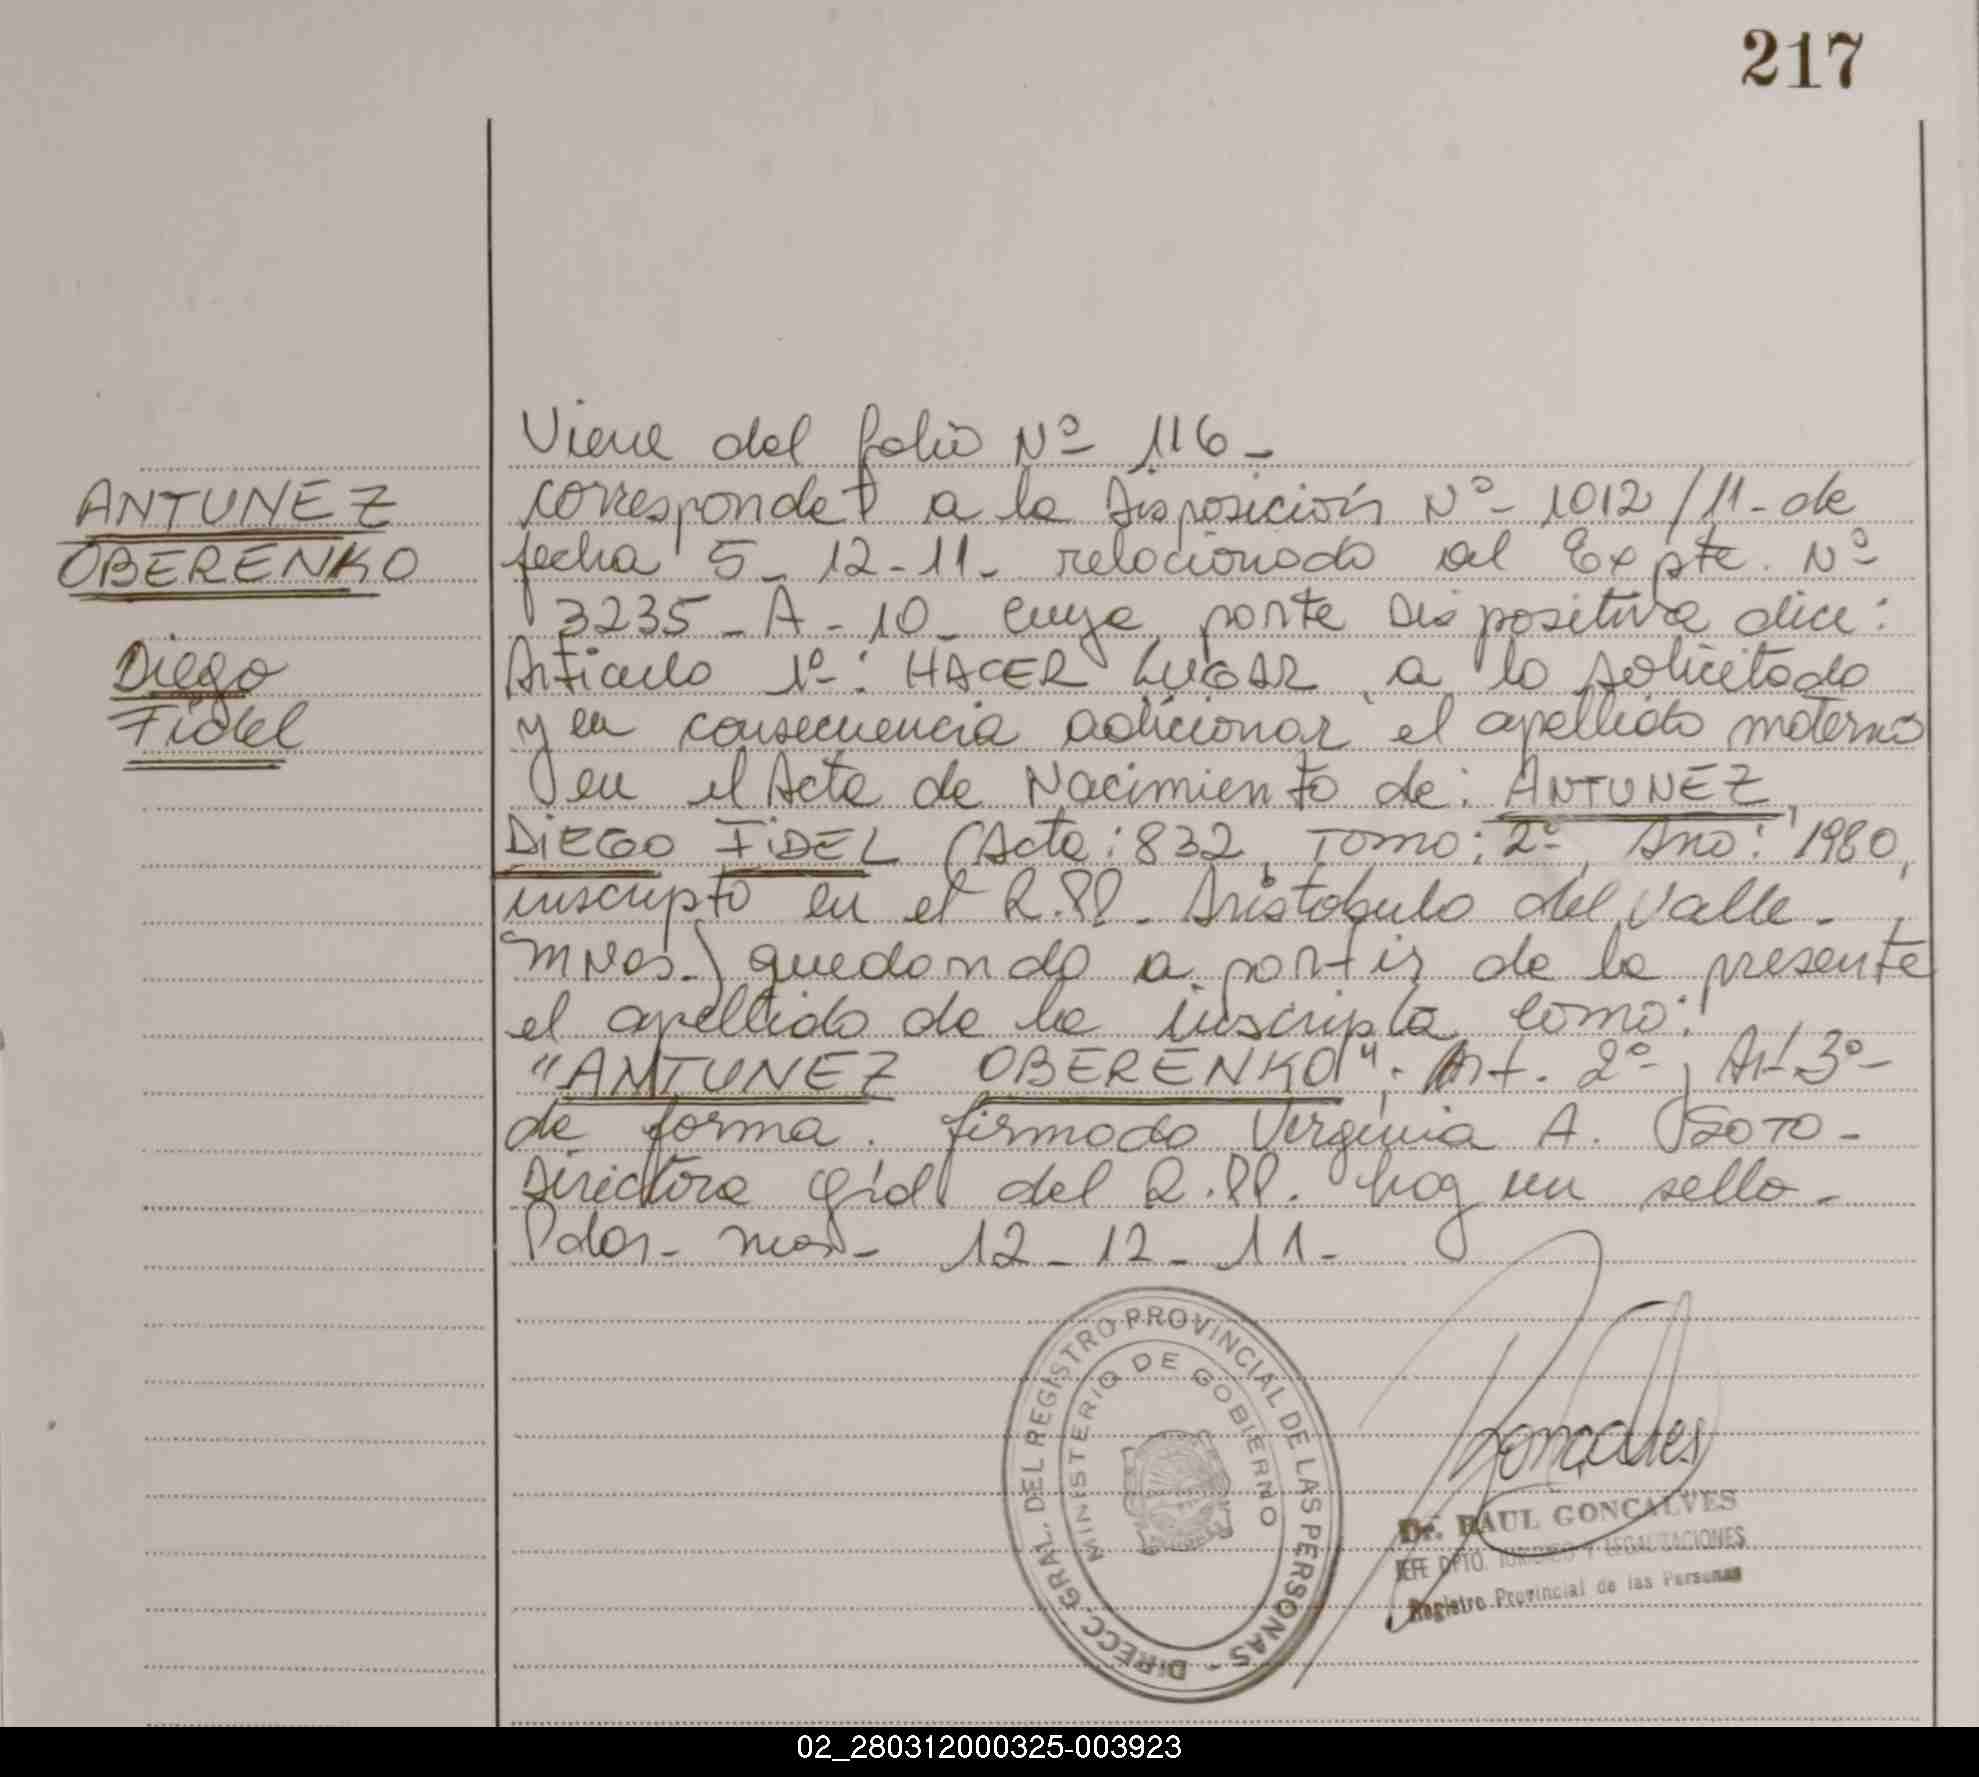 217
ANTUNEZ
OBERENKO
Diego
Fidel
Viene del folio Nº 116 -
corresponde a la Disposición Nº - 1012/11 - de
fecha 5 - 12 - 11 - relacionado al Expte. Nº
3235 - A - 10 - cuya parte Dispositiva dice :
Articulo 1º : HACER LUGAR a lo solicitado
y en consecuencia adicionar el apellido materno
en el Acta de Nacimiento de : ANTUNEZ,
DIEGO FIDEL (Acta : 832, Tomo : 2º, Año : 1980,
inscripto en el R.PP. - Aristobulo del Valle -
Mnes.) quedando a partir de la presente
el apellido de la inscripta como :
"ANTUNEZ OBERENKO" ; Art. 2º ; Art. 3º -
de forma . firmado Virginia A. SOTO -
Directora Gral del R.PP. hay un sello -
Pdas - Mnes - 12 - 12 - 11 -
DIRECC. GRAL. DEL REGISTRO PROVINCIAL DE LAS PERSONAS -
MINISTERIO DE GOBIERNO
Goncalves
Dr. RAUL GONCALVES
JEFE DPTO. JURIDICO Y LEGALIZACIONES
Registro Provincial de las Personas
02_280312000325-003923